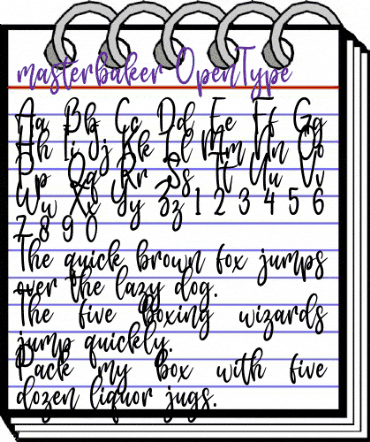 masterbaker OpenType
Aa Bb Cc Dd Ee Ff Gg
Hh Ii Jj Kk Ll Mm Nn Oo
Pp Qq Rr Ss Tt Uu Vv
Ww Xx Yy Zz 1 2 3 4 5 6
7 8 9 0
The quick brown fox jumps
over the lazy dog.
The five boxing wizards
jump quickly.
Pack my box with five
dozen liquor jugs.